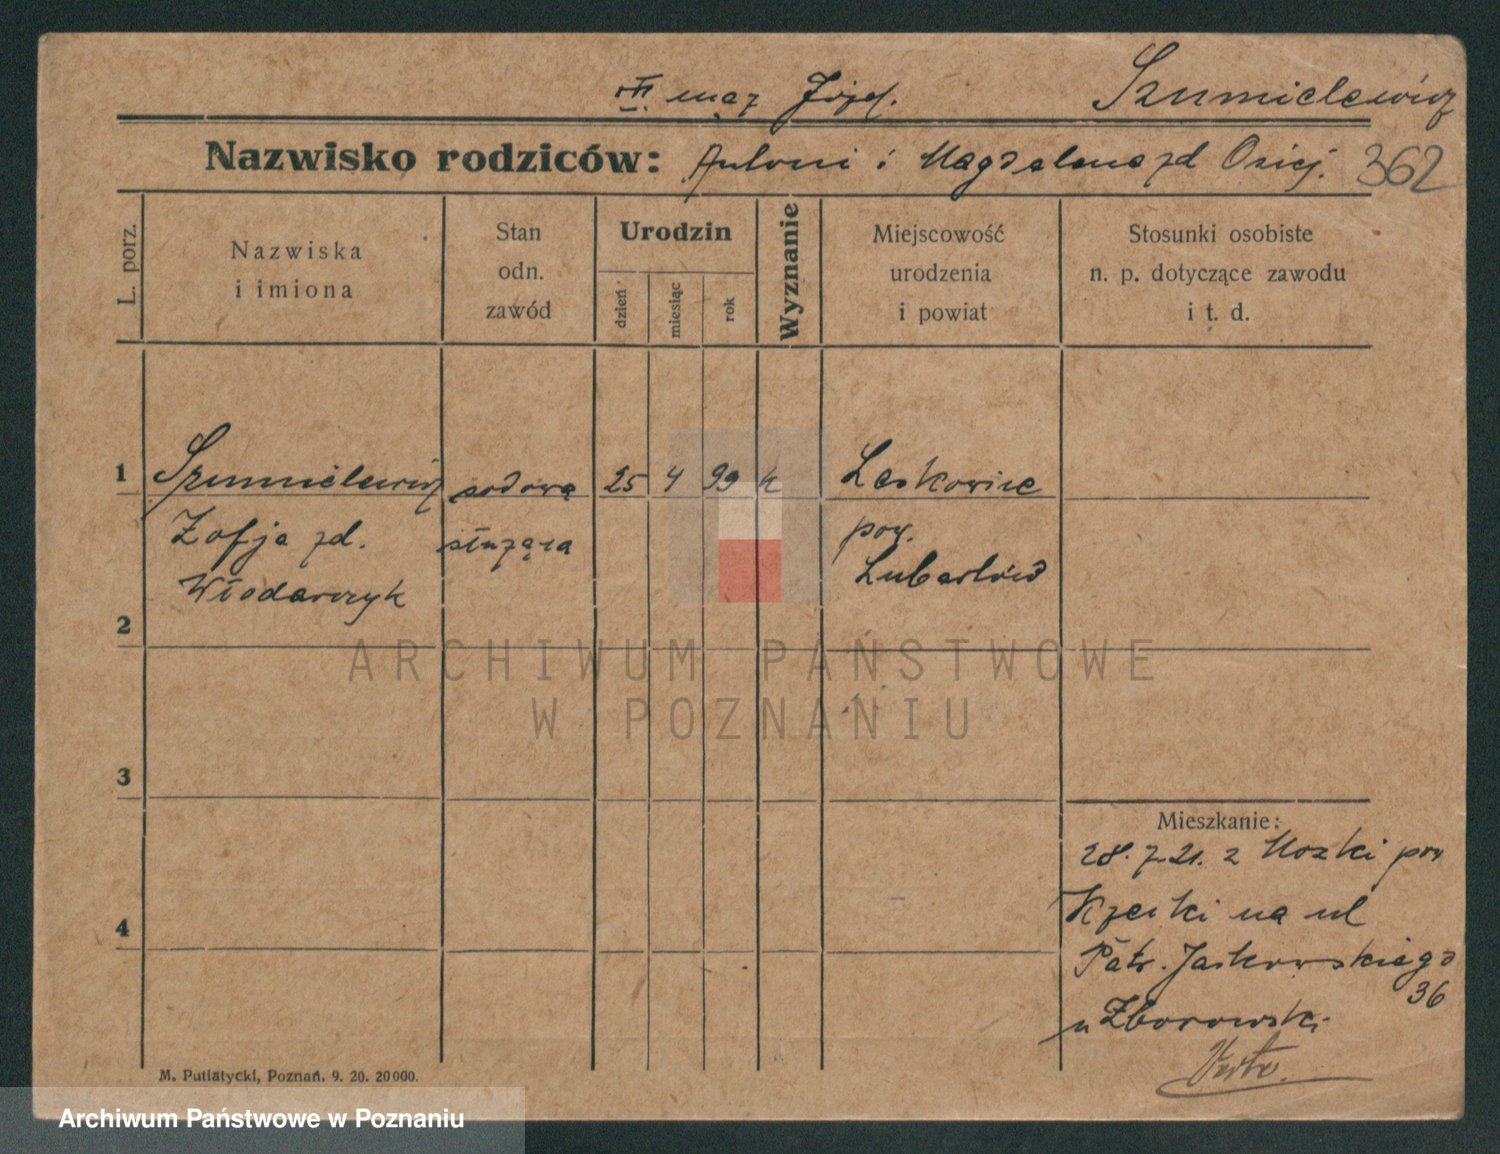 mąż Józef. Szumielewicz
Nazwisko rodziców: Antoni i Magdalena zd Osiej. 362
L. porz.
Nazwiska
i imiona
Stan
odn.
zawód
Urodzin
dzień
miesiąc
rok
Wyznanie
Miejscowość
urodzenia
i powiat
Stosunki osobiste
n. p. dotyczące zawodu
i t. d.
1 Szumielewicz 25 4 99 k Leskowice
Zofja zd. służąca pow.
Włodarczyk Lubartów
2
ARCHIWUM PAŃSTWOWE
W POZNANIU
3
Mieszkanie:
28. 7. 21. z pow
4 na ul
Patr. Jackowskiego
36
u Zborowski
Verte.
M. Putiatycki, Poznań. 9. 20. 20000.
Archiwum Państwowe w Poznaniu